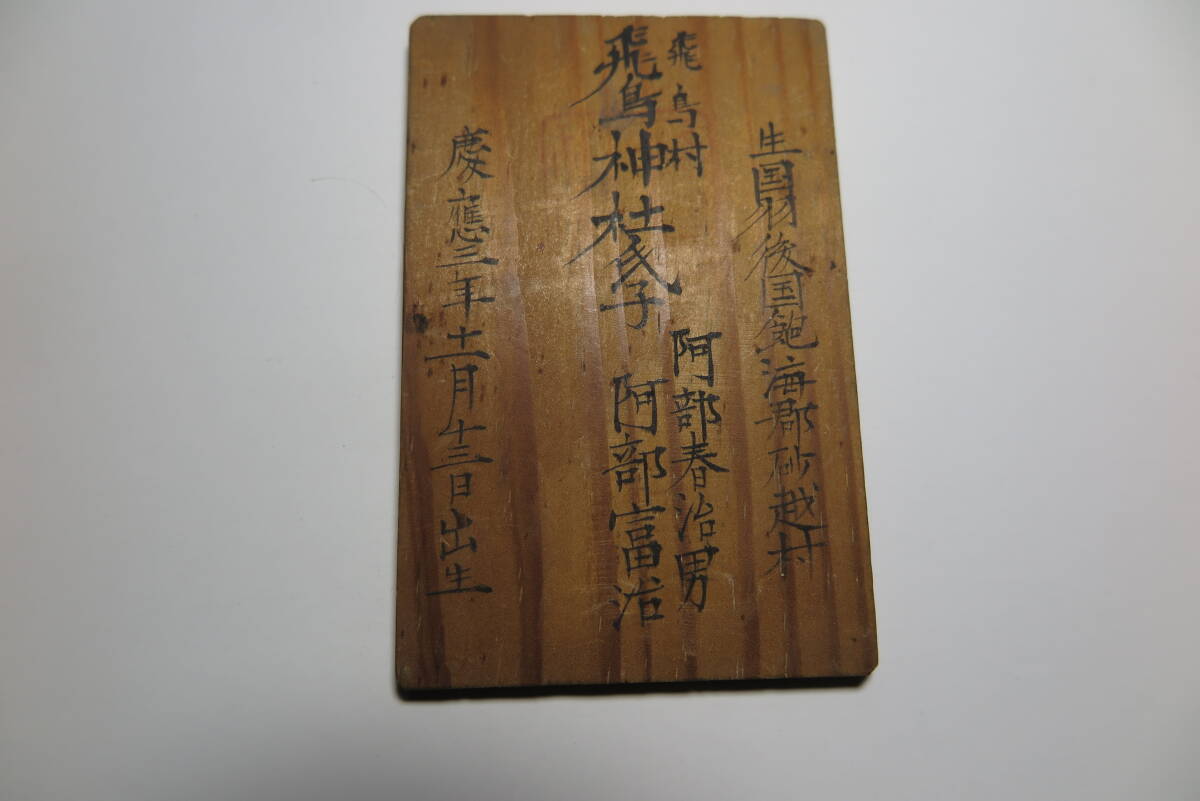 生国羽後国飽海郡砂越村
飛鳥村
阿部春治男
飛鳥神社氏子
阿部富治
慶應三年十一月十三日出生